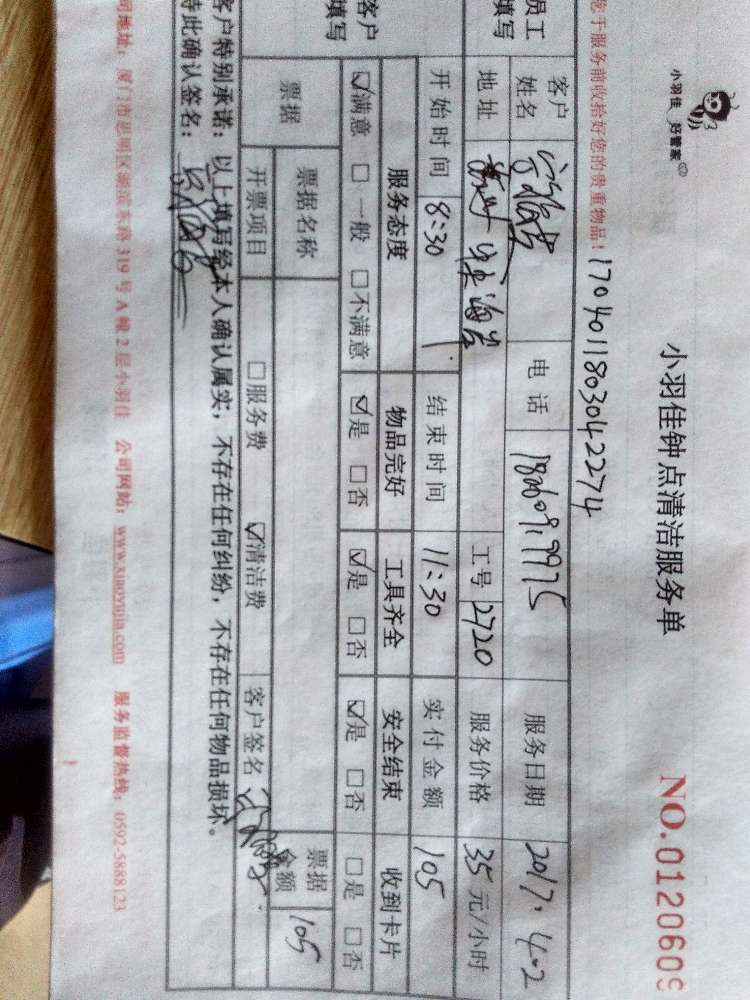 小羽佳 好管家
小羽佳钟点清洁服务单
NO.0120609
您于服务前收拾好您的贵重物品！ 1704011803042274
员工填写
客户姓名 电话 服务日期 2017.4.2
地址 工号 2720 服务价格 35 元/小时
开始时间 8:30 结束时间 11:30 实付金额 105
客户填写
服务态度 物品完好 工具齐全 安全结束 收到卡片
☑满意 □一般 □不满意 ☑是 □否 ☑是 □否 ☑是 □否 □是 □否
票据 票据名称 票据金额 105
开票项目 □服务费 ☑清洁费 客户签名
客户特别承诺：以上填写经本人确认属实，不存在任何纠纷，不存在任何物品损坏。
特此确认签名：
司地址：厦门市思明区湖滨东路 319 号 A 幢 2 层小羽佳 公司网站：www.xiaoyujia.com 服务监督热线：0592-5888123